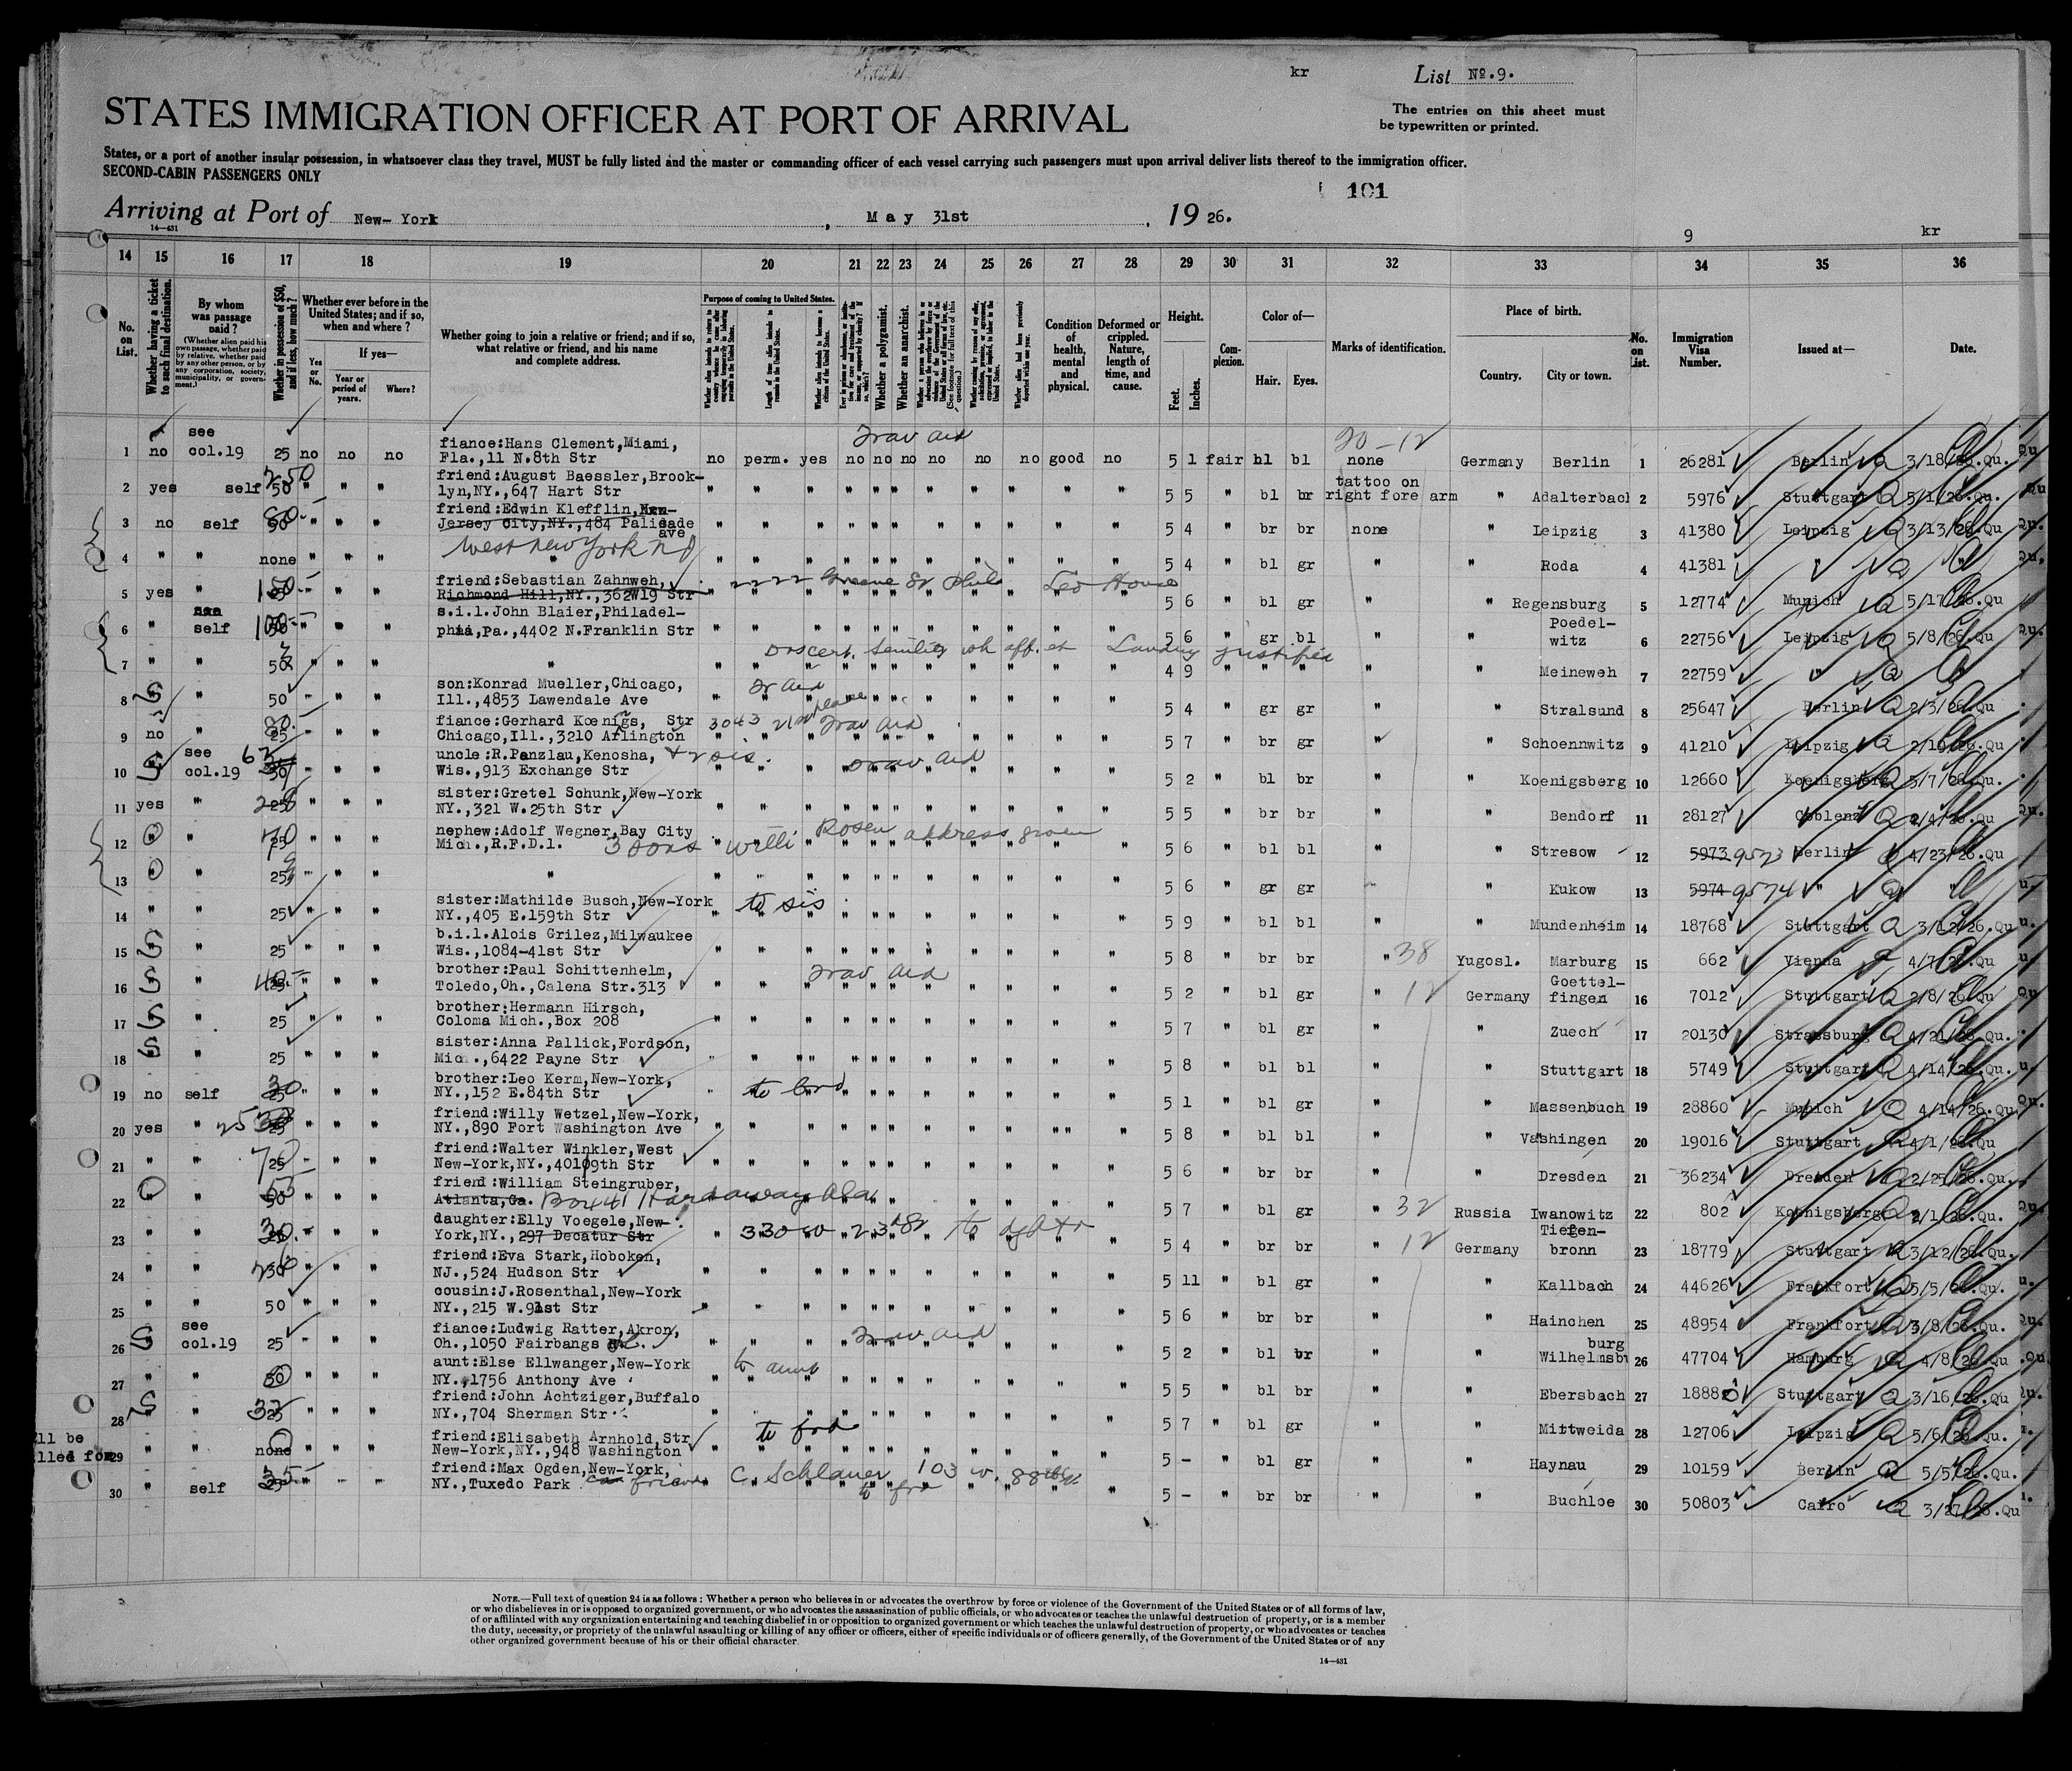 kr
List No. 9.
STATES IMMIGRATION OFFICER AT PORT OF ARRIVAL
The entries on this sheet must
be typewritten or printed.
States, or a port of another insular possession, in whatsoever class they travel, MUST be fully listed and the master or commanding officer of each vessel carrying such passengers must upon arrival deliver lists thereof to the immigration officer.
SECOND-CABIN PASSENGERS ONLY
101
Arriving at Port of New-York, May 31st, 1926.
14—431
9 kr
14 15 16 17 18 19 20 21 22 23 24 25 26 27 28 29 30 31 32 33 34 35 36
No. on List.
Whether having a ticket to such final destination.
By whom was passage paid?
(Whether alien paid his own passage, whether paid by relative, whether paid by any other person, or by any corporation, society, municipality, or government.)
Whether in possession of $50, and if less, how much?
Whether ever before in the United States; and if so, when and where?
Yes or No.
If yes—
Year or period of years.
Where?
Whether going to join a relative or friend; and if so, what relative or friend, and his name and complete address.
Purpose of coming to United States.
Length of time alien intends to remain in the United States.
Whether alien intends to become a citizen of the United States.
Whether a polygamist.
Whether an anarchist.
Condition of health, mental and physical.
Deformed or crippled. Nature, length of time, and cause.
Height.
Feet.
Inches.
Complexion.
Color of—
Hair.
Eyes.
Marks of identification.
Place of birth.
Country.
City or town.
No. on List.
Immigration Visa Number.
Issued at—
Date.
Trav aid 20-12
1 no see col.19 25 no no no fiance:Hans Clement,Miami, Fla.,11 N.8th Str no perm. yes no no no no no no good no 5 1 fair bl bl none Germany Berlin 1 26281 Berlin 3/18/26.Qu.
2 yes self 50 " " " friend:August Baessler,Brooklyn,NY.,647 Hart Str 5 5 " bl br tattoo on right fore arm " Adalterbach 2 5976 Stuttgart 5/1/26.Qu.
3 no self " " " friend:Edwin Klefflin, Jersey City,NY.,484 Palisade ave 5 4 " br br none " Leipzig 3 41380 Leipzig 3/13/26.Qu
West New York NJ
4 " " none " " " " 5 4 " bl gr " " Roda 4 41381 "
5 yes " 150 " " " friend:Sebastian Zahnweh, Richmond Hill,NY.,362W19 Str 2222 Greene St Phila Leo House 5 6 " bl gr " " Regensburg 5 12774 Munich 5/17/26.Qu
6 " self 100 " " " s.i.l.John Blaier,Philadelphia,Pa.,4402 N.Franklin Str 5 6 " gr bl " " Poedelwitz 6 22756 Leipzig 5/8/26.Qu
Landing justified
7 " " 50 " " " " 4 9 " " " " " Meineweh 7 22759 "
8 " 50 " " " son:Konrad Mueller,Chicago, Ill.,4853 Lawendale Ave Tr aid 5 4 " gr gr " " Stralsund 8 25647 Berlin 2/3/26.Qu
9 no " 25 " " " fiance:Gerhard Koenigs, Str Chicago,Ill.,3210 Arlington 3043 21st place Trav aid 5 7 " br gr " " Schoennwitz 9 41210 Leipzig 2/10/26.Qu
10 see col.19 " " " uncle:R.Panzlau,Kenosha, Wis.,913 Exchange Str Trav aid 5 2 " bl br " " Koenigsberg 10 12660 Koenigsberg 5/7/26.Qu.
11 yes " " " " sister:Gretel Schunk,New-York NY.,321 W.25th Str 5 5 " br br " " Bendorf 11 28127 Coblenz 2/4/26.Qu
12 " 70 " " " nephew:Adolf Wegner,Bay City Mich.,R.F.D.1. 3 sons Willi Rosen address given 5 6 " bl bl " " Stresow 12 5973 9573 Berlin 4/23/26.Qu
13 " 25 " " " " 5 6 " gr gr " Kukow 13 5974 9574 "
14 " " 25 " " " sister:Mathilde Busch,New-York NY.,405 E.159th Str to sis 5 9 " bl bl " " Mundenheim 14 18768 Stuttgart 3/12/26.Qu
15 " 25 " " " b.i.l.Alois Grilez,Milwaukee Wis.,1084-41st Str 5 8 " br br " 38 Yugosl. Marburg 15 662 Vienna 4/7/26.Qu
16 " 40 " " " brother:Paul Schittenhelm, Toledo,Oh.,Calena Str.313 Trav aid 5 2 " bl gr " 12 Germany Goettelfingen 16 7012 Stuttgart 2/8/26.Qu
17 " 25 " " " brother:Hermann Hirsch, Coloma Mich.,Box 208 5 7 " bl gr " " Zuech 17 20130 Strassburg 4/21/26.Qu.
18 " 25 " " " sister:Anna Pallick,Fordson, Mich.,6422 Payne Str 5 8 " bl bl " " Stuttgart 18 5749 Stuttgart 4/14/26.Qu.
19 no self 30 " " " brother:Leo Kerm,New-York, NY.,152 E.84th Str to brd 5 1 " bl gr " " Massenbuch 19 28860 Munich 4/14/26.Qu.
20 yes " " " " friend:Willy Wetzel,New-York, NY.,890 Fort Washington Ave 5 8 " bl bl " " Vashingen 20 19016 Stuttgart 4/1/26.Qu
21 " " 25 " " " friend:Walter Winkler,West New-York,NY.,401 9th Str 5 6 " br br " " Dresden 21 36234 Dresden 2/25/26.Qu.
22 " 50 " " " friend:William Steingruber, Atlanta,Ga. Box 41 Hardaway Ala 5 7 " bl gr " 32 Russia Iwanowitz 22 802 Koenigsberg 2/1/26.Qu.
23 " " 30 " " " daughter:Elly Voegele,New-York,NY.,297 Decatur Str 330 W 23rd St to dgbtr 5 4 " br br " 12 Germany Tiefenbronn 23 18779 Stuttgart 3/12/26.Qu.
24 " " " " " friend:Eva Stark,Hoboken, NJ.,524 Hudson Str 5 11 " bl gr " " Kallbach 24 44626 Frankfort 5/5/26.Qu.
25 " " 50 " " " cousin:J.Rosenthal,New-York NY.,215 W.91st Str 5 6 " br br " " Hainchen 25 48954 Frankfort 3/8/26.Qu.
26 see col.19 25 " " " fiance:Ludwig Ratter,Akron, Oh.,1050 Fairbangs Trav aid 5 2 " bl br " " Wilhelmsburg 26 47704 Hamburg 4/8/26.Qu
27 " " 50 " " " aunt:Else Ellwanger,New-York NY.,1756 Anthony Ave to aunt 5 5 " bl br " " Ebersbach 27 18880 Stuttgart 3/16/26.Qu.
28 " " " " " friend:John Achtziger,Buffalo NY.,704 Sherman Str 5 7 " bl gr " " Mittweida 28 12706 Leipzig 5/6/26.Qu.
ll be
lled for
29 " " none " " " friend:Elisabeth Arnhold,Str New-York,NY.,948 Washington to frd 5 - " bl gr " " Haynau 29 10159 Berlin 5/5/26.Qu.
30 " self 25 " " " friend:Max Ogden,New-York, NY.,Tuxedo Park friend C. Schlauer 103 W. 88th St to frd 5 - " br br " " Buchloe 30 50803 Cairo 3/27/26.Qu
NOTE.—Full text of question 24 is as follows: Whether a person who believes in or advocates the overthrow by force or violence of the Government of the United States or of all forms of law,
or who disbelieves in or is opposed to organized government, or who advocates the assassination of public officials, or who advocates or teaches the unlawful destruction of property, or is a member
of or affiliated with any organization entertaining and teaching disbelief in or opposition to organized government or which teaches the unlawful destruction of property, or who advocates or teaches
the duty, necessity, or propriety of the unlawful assaulting or killing of any officer or officers, either of specific individuals or of officers generally, of the Government of the United States or of any
other organized government because of his or their official character.
14—431